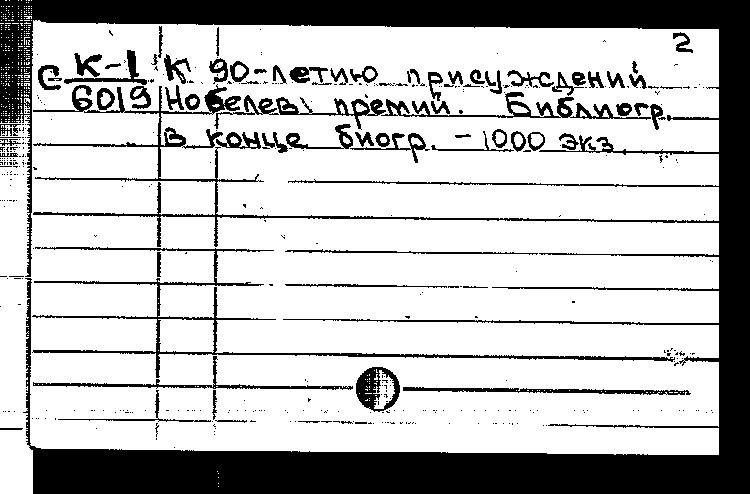 2
С К-1 К 90-летию присуждений
6019 Нобелев. премий. Библиогр.
в конце биогр. - 1000 экз.